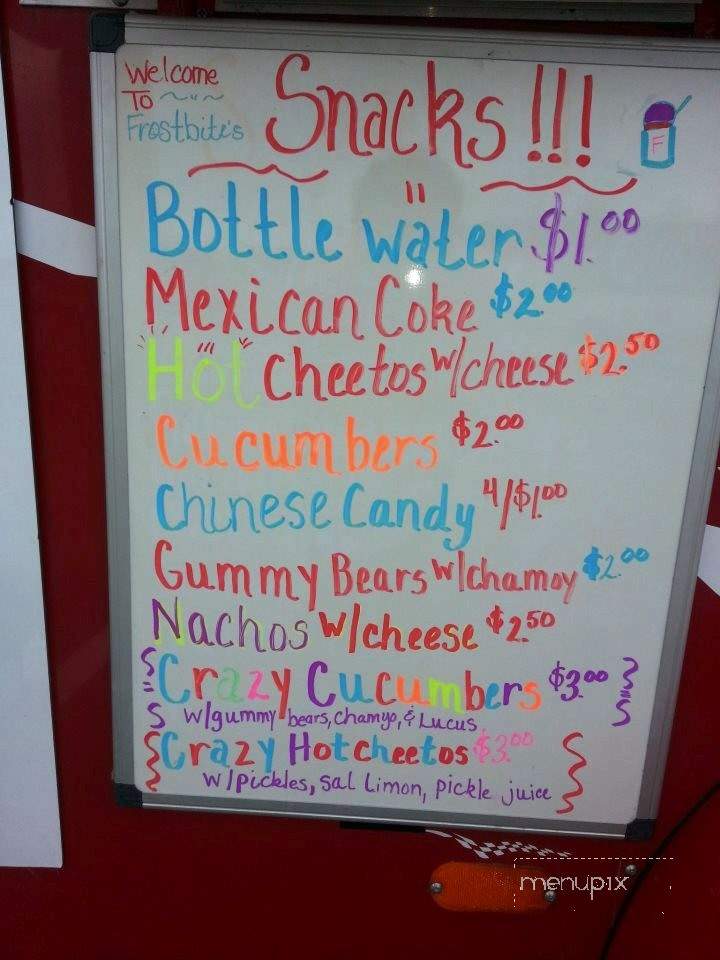 Welcome
To
Frostbite's
Snacks!!!
F
Bottle water $1.00
Mexican Coke $2.00
Hot Cheetos w/cheese $2.50
Cucumbers $2.00
Chinese Candy 4/$1.00
Gummy Bears w/chamoy $2.00
Nachos w/cheese $2.50
Crazy Cucumbers $3.00
w/gummy bears, chamyo, & Lucus
Crazy Hot cheetos $3.00
w/pickles, sal Limon, pickle juice
menupix